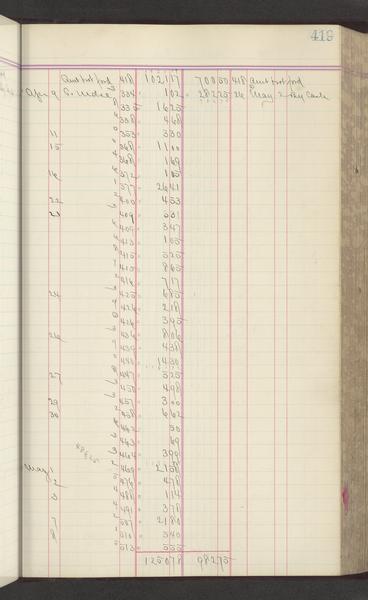 419
Amt brot ford 418 102117 70050 418 Amt brot ford
Apr 9 S. Mdse 334 102 28225 26 May 2 By Cash
335 1625
338 468
11 353 330
15 368 1100
368 169
16 372 105
377 2641
22 400 453
23 409 531
409 347
413 105
415 525
415 865
416 717
24 425 685
426 218
426 395
26 436 806
439 438
440 1430
27 447 525
450 498
29 457 300
30 458 662
462 50
463 69
464 399
May 1 469 2158
2 476 478
3 488 114
491 378
7 507 2180
8 510 340
513 555
125078 98275